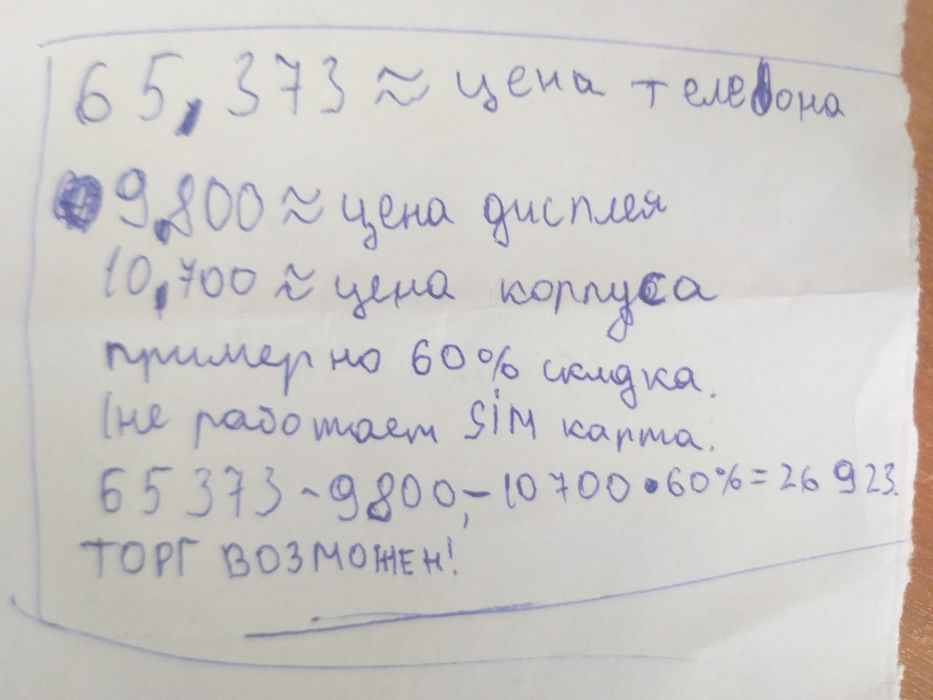 65,373 ≈ цена телефона
9,800 ≈ цена дисплея
10,700 ≈ цена корпуса
примерно 60% скидка.
(не работает SiM карта.
65373-9800,-10700•60%=26923.
ТОРГ ВОЗМОЖЕН!